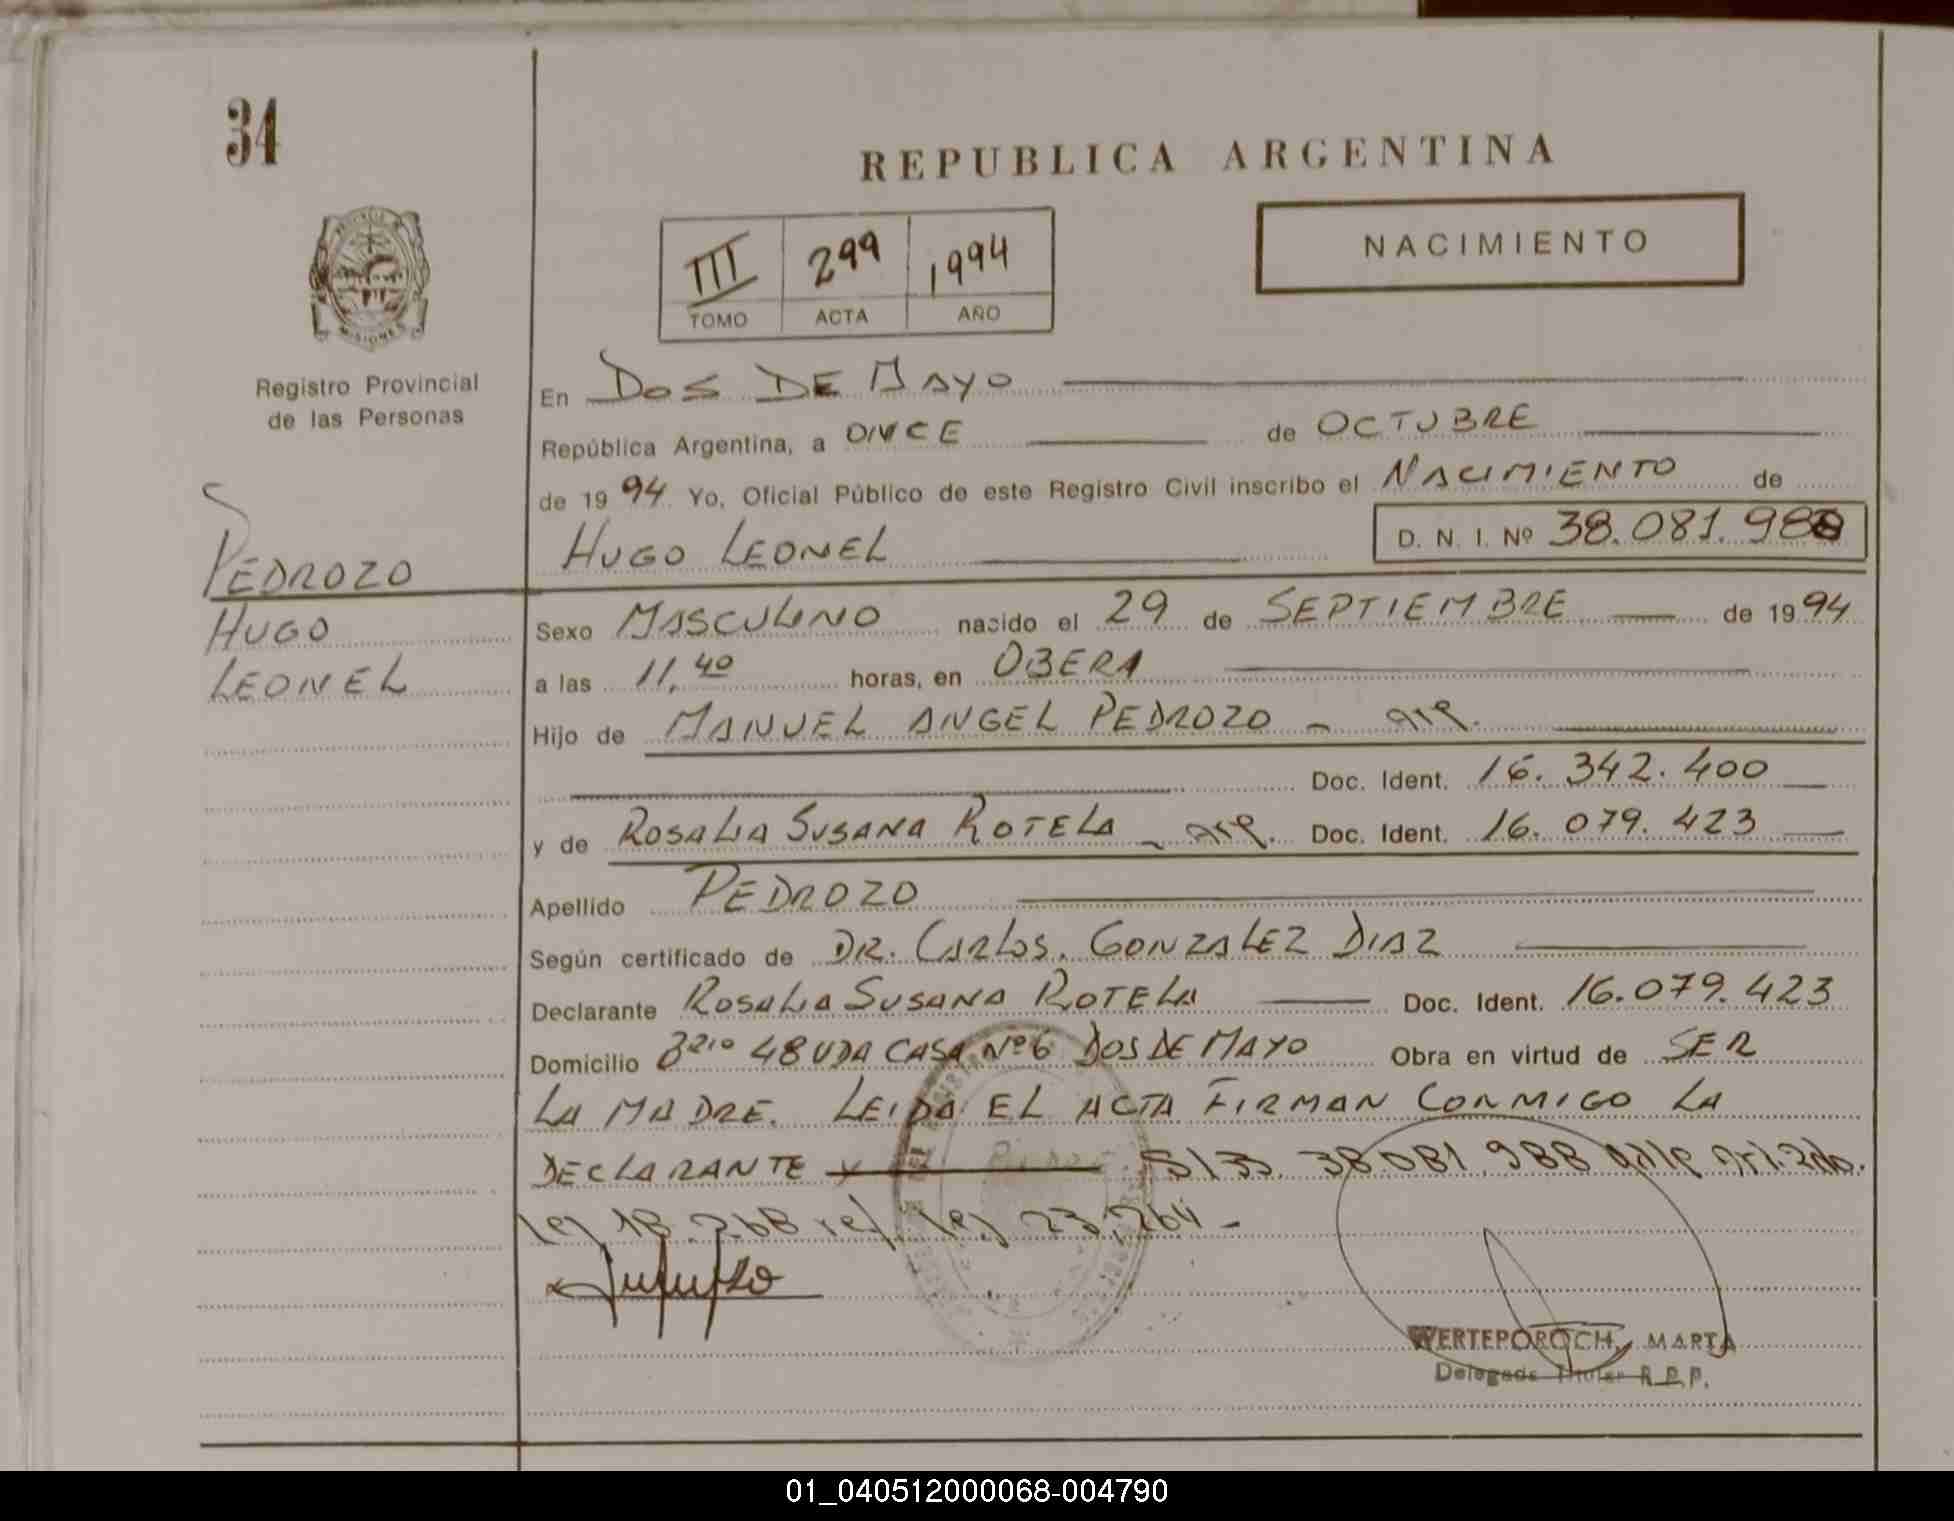 34
REPUBLICA ARGENTINA
NACIMIENTO
III 299 1994
TOMO ACTA AÑO
MISIONES
Registro Provincial
de las Personas
PEDROZO
HUGO
LEONEL
En DOS DE MAYO
República Argentina, a ONCE de OCTUBRE
de 1994 Yo, Oficial Público de este Registro Civil inscribo el NACIMIENTO de
HUGO LEONEL D. N. I. Nº 38.081.988
Sexo MASCULINO nacido el 29 de SEPTIEMBRE de 1994
a las 11,40 horas, en OBERA
Hijo de MANUEL ANGEL PEDROZO - arg.
Doc. Ident. 16.342.400
y de ROSALIA SUSANA ROTELA - arg. Doc. Ident. 16.079.423
Apellido PEDROZO
Según certificado de DR. CARLOS. GONZALEZ DIAZ
Declarante ROSALIA SUSANA ROTELA Doc. Ident. 16.079.423
Domicilio Brio 48 VDA CASA Nº6 DOS DE MAYO Obra en virtud de SER
LA MADRE. LEIDA EL ACTA FIRMAN CONMIGO LA
DECLARANTE y 38.081.988
ley 18.268 ley 23.264-
WERTEPOROCH, MARTA
Delegada Titular R.P.P.
01_040512000068-004790